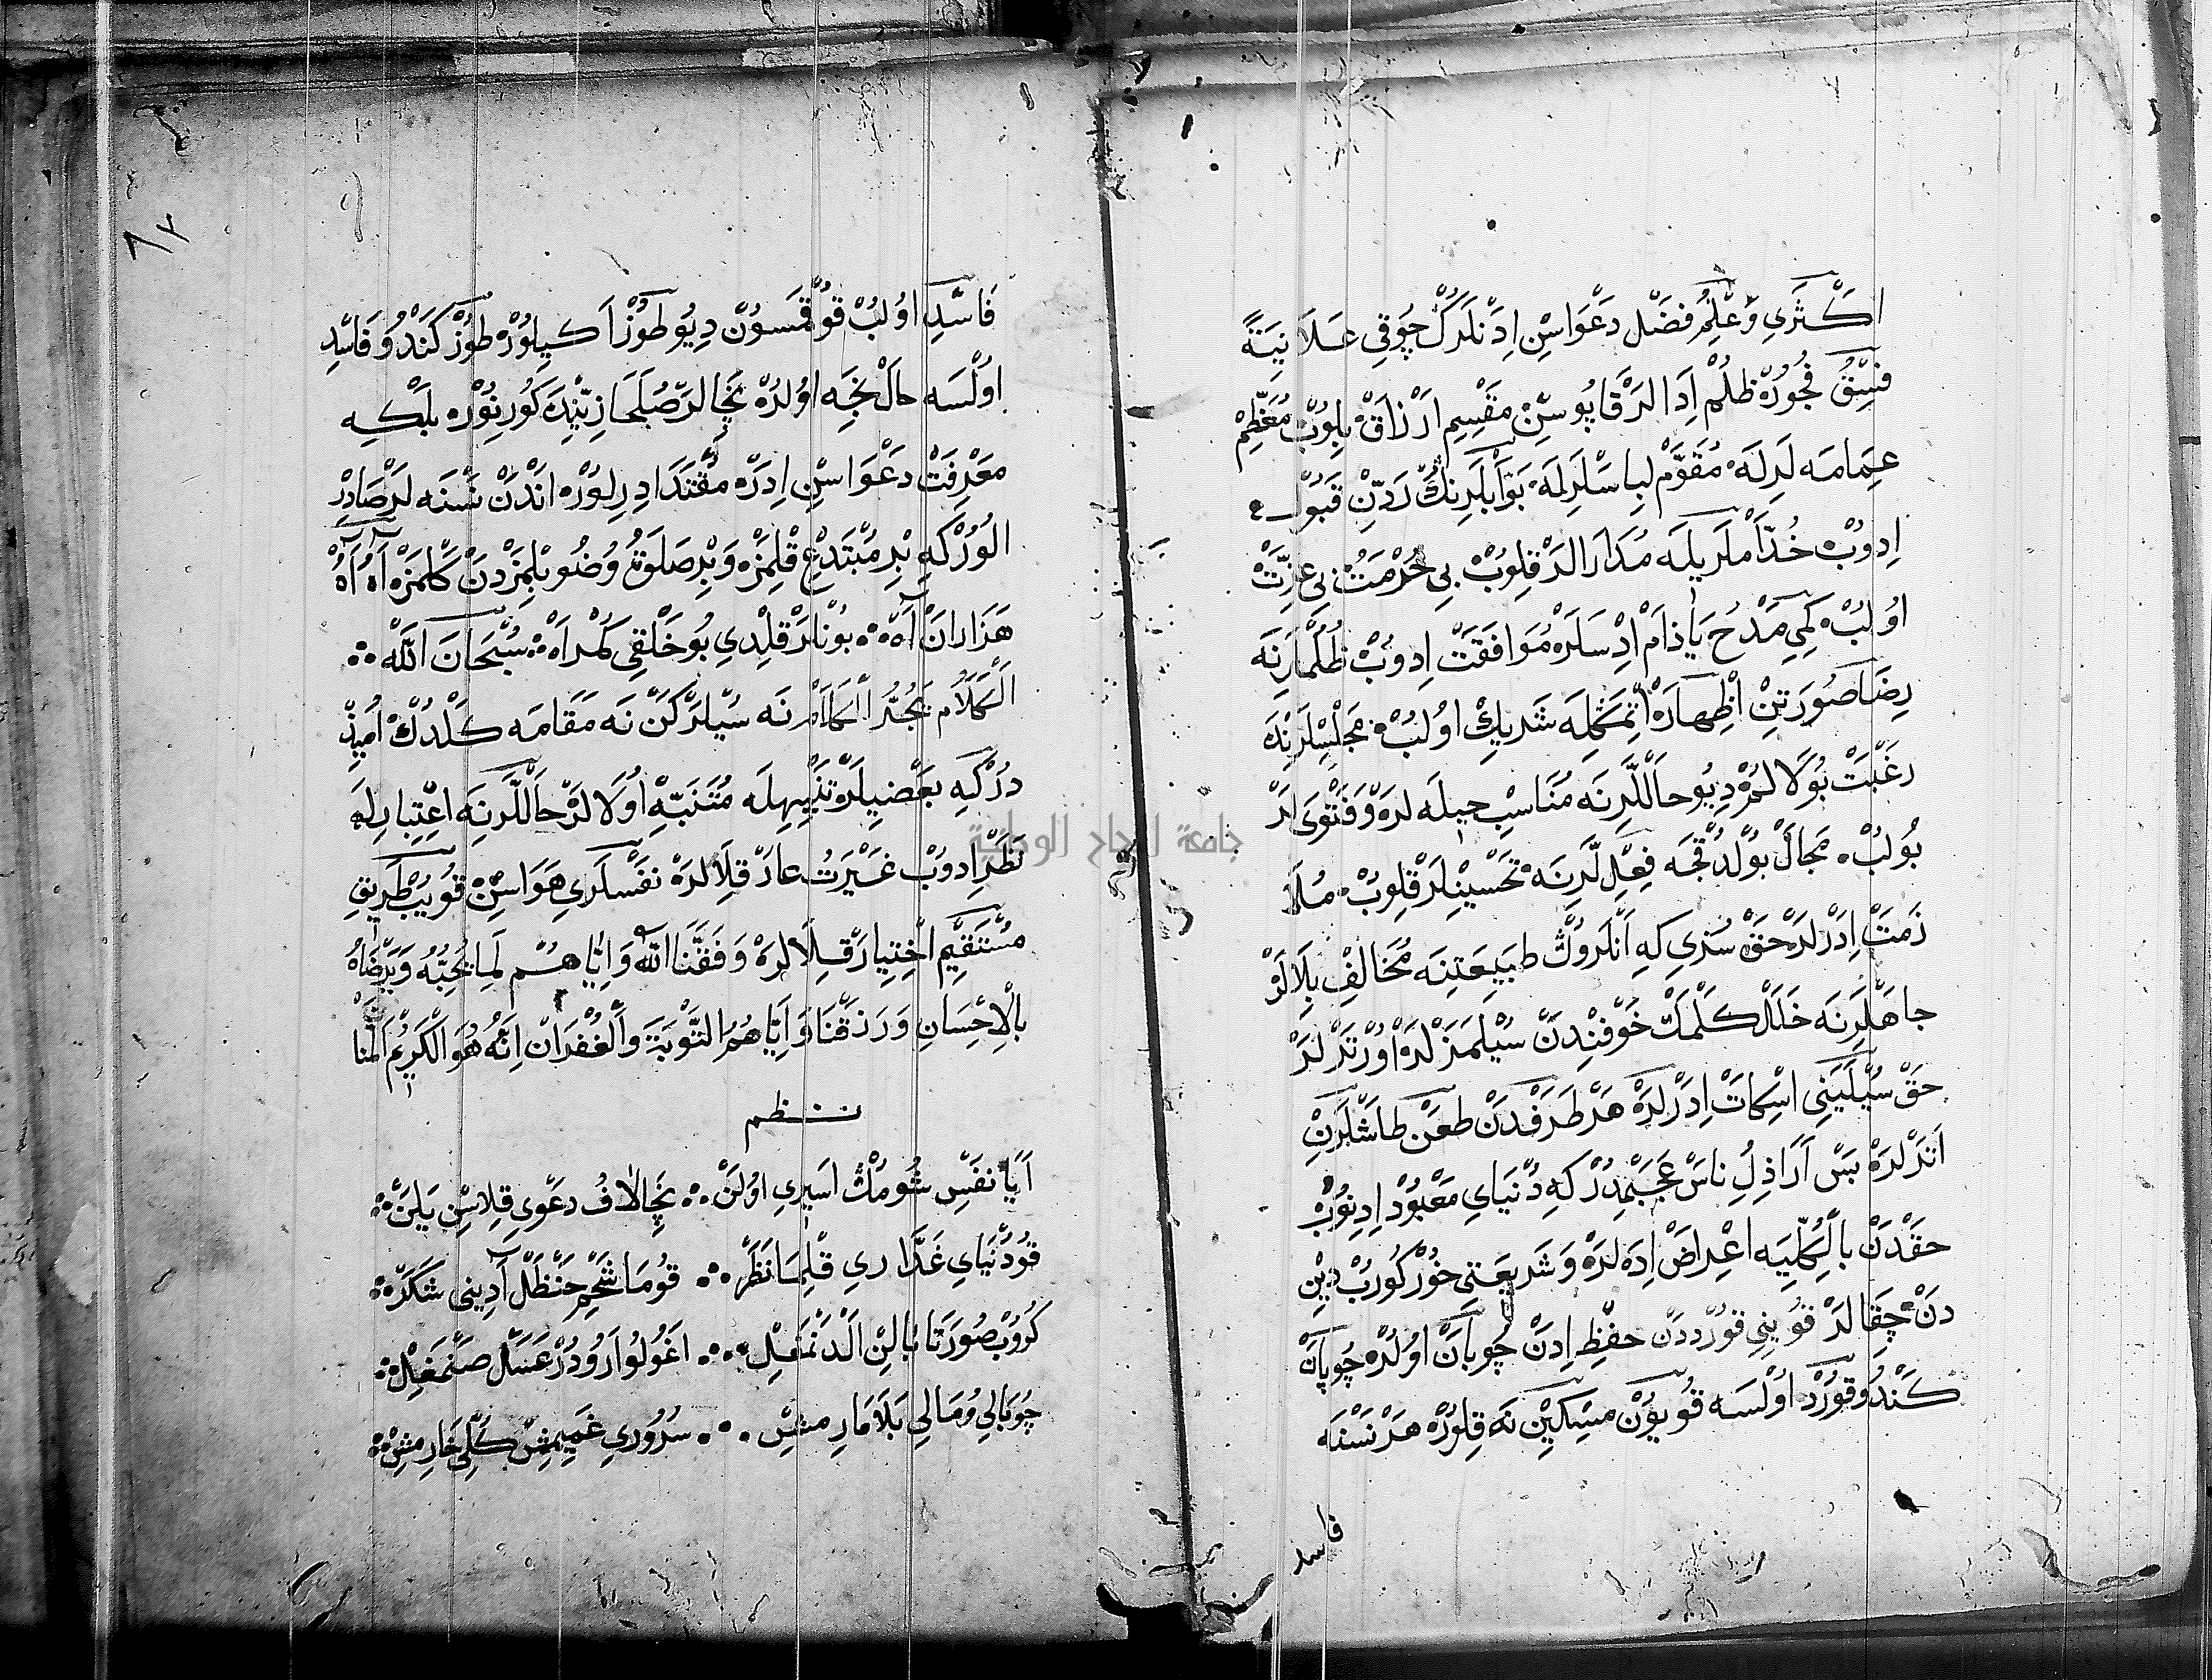 اَكْثَرِي وَعِلْمُ فَضْل دَعْوَاسِن اِدَنْلَرُكْ چُوقِي عَلَانِيَةً
فِسْقُ فُجُورْ ظُلُمْ اِدَالَرْ قَاپُوسِنْ مَقْسِمِ اَرْزَاقْ بِلُوبْ مُعَظَّمْ
عِمَامَه لَرِلَه مُقَوَّمْ لِبَاسْلَرِلَه بَوَّابْلَرِنُكْ رَدِّنْ قَبُولْ
اِدُوبْ خُدَّامْلَرِيلَه مُدَارَالَرْ قِلُوبْ بِي حُرْمَتْ بِي عِزَّتْ
اُولُبْ كِمِي مَدْحُ يَا ذَامْ اِدْسَلَرْ مُوَافَقَتْ اِدُوبْ ظُلُمْلَرِنَه
رِضَا صُورَتِنْ اِظْهَارْ اِتْمَكْلَه شَرِيكْ اُولُبْ مَجْلِسْلَرِنْدَه
رَغْبَتْ بُولَالُمْ دِيُو حَالْلَرِنَه مُنَاسِبْ حِيلَه لَرْ وَ فَتْوَى لَرْ
بُولُبْ مَجَالْ بُولْدُقْجَه فِعِلْلَرِنَه تَحْسِينْلَرْ قِلُوبْ مُلَا
زَمَتْ اِدَرْلَرْ حَقْ سُزِي كِه اَنْلَرُوكْ طَبِيعَتِنَه مُخَالِفْ بِلَالَرْ
جَاهْلَرِنَه خَلَلْ كَلْمَكْ خَوْفِنْدَنْ سُيْلَمَزْلَرْ اُورْتَرْلَرْ
حَقْ سُيْلَيَنِي اِسْكَاتْ اِدَرْلَرْ هَرْ طَرَفْدَنْ طَعَنْ طَاشْلَرِنْ
اَتَرْلَرْ بَسْ اَرَاذِلِ نَاسْ عَجَبْمِدُرْ كِه دُنْيَايِ مَعْبُودْ اِدِنُوبْ
حَقْدَنْ بِالْكُلِّيَه اِعْرَاضْ اِدَه لَرْ وَ شَرِيعَتِي خُورْ كُورُبْ دِيْن
دَنْ چِقَالَرْ قُويُنِي قُورْددَنْ حِفْظِ اِدَنْ چُوبَانْ اُولُرْ چُوبَانْ
كَنْدُو قُورْدْ اُولْسَه قُويُونْ مِسْكِينْ نَه قِلُورْ هَرْ نَسْنَه
فاسد
٨٢
فَاسِدْ اُولُبْ قُوقْمَسُونْ دِيُو طُوزْ اَكِيلُورْ طُوزْ كَنْدُو فَاسِدْ
اُولْسَه حَالْ نِجَه اُولُرْ نِچَالَرْ صُلَحَا زِيِّنْدَه كُورِنُورْ بَلْكِه
مَعْرِفَتْ دَعْوَاسِنْ اِدَرْ مُقْتَدَا دِرِلُورْ اَنْدَنْ نَسْنَه لَرْ صَادِرْ
اُلُورْ كِه بِرْ مُبْتَدِعْ قِلْمَزْ وَ بِرْ صَلَوقُ وُضُو بِلْمِزْدَنْ كَلْمَزْ آهْ آهْ
هَزَارَانْ آهْ بُونْلَرْ قِلْدِي بُو خَلْقِي كُمْرَاهْ سُبْحَانَ اللّٰه
اَلْكَلَامُ يَجُرُّ الْكَلَامْ نَه سُيْلَرْكَنْ نَه مَقَامَه كَلْدُكْ اُمِيذْ
دُرْكِه بَعْضِيلَرْ تَنْبِيهِلَه مُتَنَبِّهْ اُولَالَرْ حَالْلَرِنَه اِعْتِبَارِلَه
نَظَرْ اِدُوبْ غَيْرَتُ عَارْ قِلَالَرْ نَفْسْلَرِي هَوَاسِنْ قُويُبْ طَرِيقِ
مُسْتَقِيمْ اِخْتِيَارْ قِلَالَرْ وَفَّقَنَا اللّٰهُ وَ اِيَّاهُمْ لِمَا يُحِبُّهُ وَيَرْضَاهُ
بِالْاِحْسَانِ وَ رَزَقَنَا وَ اِيَّاهُمُ التَّوْبَةَ وَالْغُفْرَانْ اِنَّهُ هُوَ الْكَرِيمُ الْمَنَّانْ
نظم
اَيَا نَفْسِ شُومُكْ اَسِيرِي اُولَنْ نِچَالَافُ دَعْوِي قِلَاسِنْ يَلَنْ
قُو دُنْيَايِ غَدَّارِي قِلْمَا نَظَرْ قُومَا شَحْمِ حَنْظَلْ آدِينِي شَكَرْ
كُرُوبْ صُورَتَا بَالِنْ اَلْدَنْمَغِلْ اَغُولُوا رُودُرْ عَسَلْ صَنْمَغِلْ
چُو بَالِي وُ مَالِي بَلَا مَارِ مِشْ سُرُورِي غَمِيمِشْ كُلِي خَارِ مِشْ